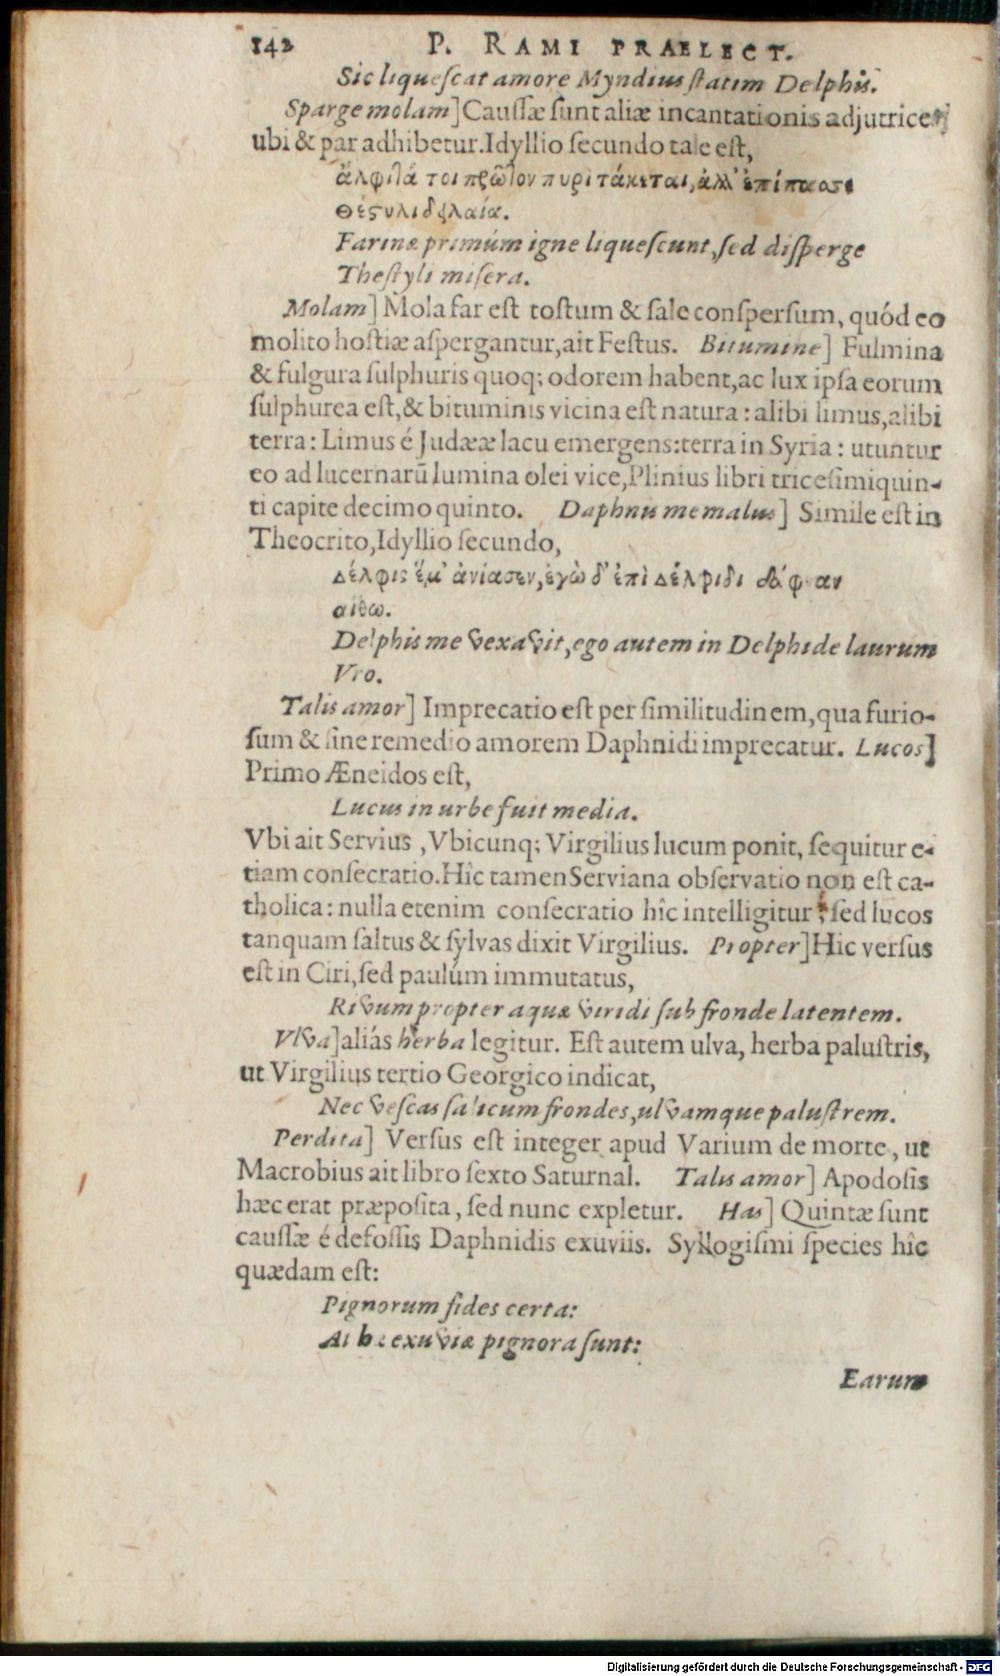 142 P. RAMI PRAELECT.
Sic liqueſcat amore Myndius ſtatim Delphis.
Sparge molam] Cauſſæ ſunt aliæ incantationis adjutrices
ubi & par adhibetur. Idyllio ſecundo tale eſt,
ἄλφιτά τοι πρῶτον πυρὶ τάκεται, ἀλλ' ἐπίπασσε
Θέστυλι δειλαία.
Farinæ primúm igne liqueſcunt, ſed diſperge
Theſtyli miſera.
Molam] Mola far eſt toſtum & ſale conſperſum, quód eo
molito hoſtiæ aſpergantur, ait Feſtus. Bitumine] Fulmina
& fulgura ſulphuris quoq; odorem habent, ac lux ipſa eorum
ſulphurea eſt, & bituminis vicina eſt natura: alibi limus, alibi
terra: Limus é Judææ lacu emergens: terra in Syria: utuntur
eo ad lucernarũ lumina olei vice, Plinius libri triceſimiquin-
ti capite decimo quinto. Daphnis me malus] Simile eſt in
Theocrito, Idyllio ſecundo,
Δέλφις ἔμ' ἀνίασεν, ἐγὼ δ' ἐπὶ Δέλφιδι δάφναν
αἴθω.
Delphis me vexavit, ego autem in Delphide laurum
Vro.
Talis amor] Imprecatio eſt per ſimilitudinem, qua furio-
ſum & ſine remedio amorem Daphnidi imprecatur. Lucos]
Primo Æneidos eſt,
Lucus in urbe fuit media.
Vbi ait Servius, Vbicunq; Virgilius lucum ponit, ſequitur e-
tiam conſecratio. Hîc tamen Serviana obſervatio non eſt ca-
tholica: nulla etenim conſecratio hîc intelligitur; ſed lucos
tanquam ſaltus & ſylvas dixit Virgilius. Propter] Hic verſus
eſt in Ciri, ſed paulúm immutatus,
Rivum propter aquæ viridi ſub fronde latentem.
Vlva] aliás herba legitur. Eſt autem ulva, herba paluſtris,
ut Virgilius tertio Georgico indicat,
Nec veſcas ſalicum frondes, ulvamque paluſtrem.
Perdita] Verſus eſt integer apud Varium de morte, ut
Macrobius ait libro ſexto Saturnal. Talis amor] Apodoſis
hæc erat præpoſita, ſed nunc expletur. Has] Quintæ ſunt
cauſſæ é defoſſis Daphnidis exuviis. Syllogiſmi ſpecies hîc
quædam eſt:
Pignorum fides certa:
At hæ exuviæ pignora ſunt:
Earum
Digitalisierung gefördert durch die Deutsche Forschungsgemeinschaft - DFG